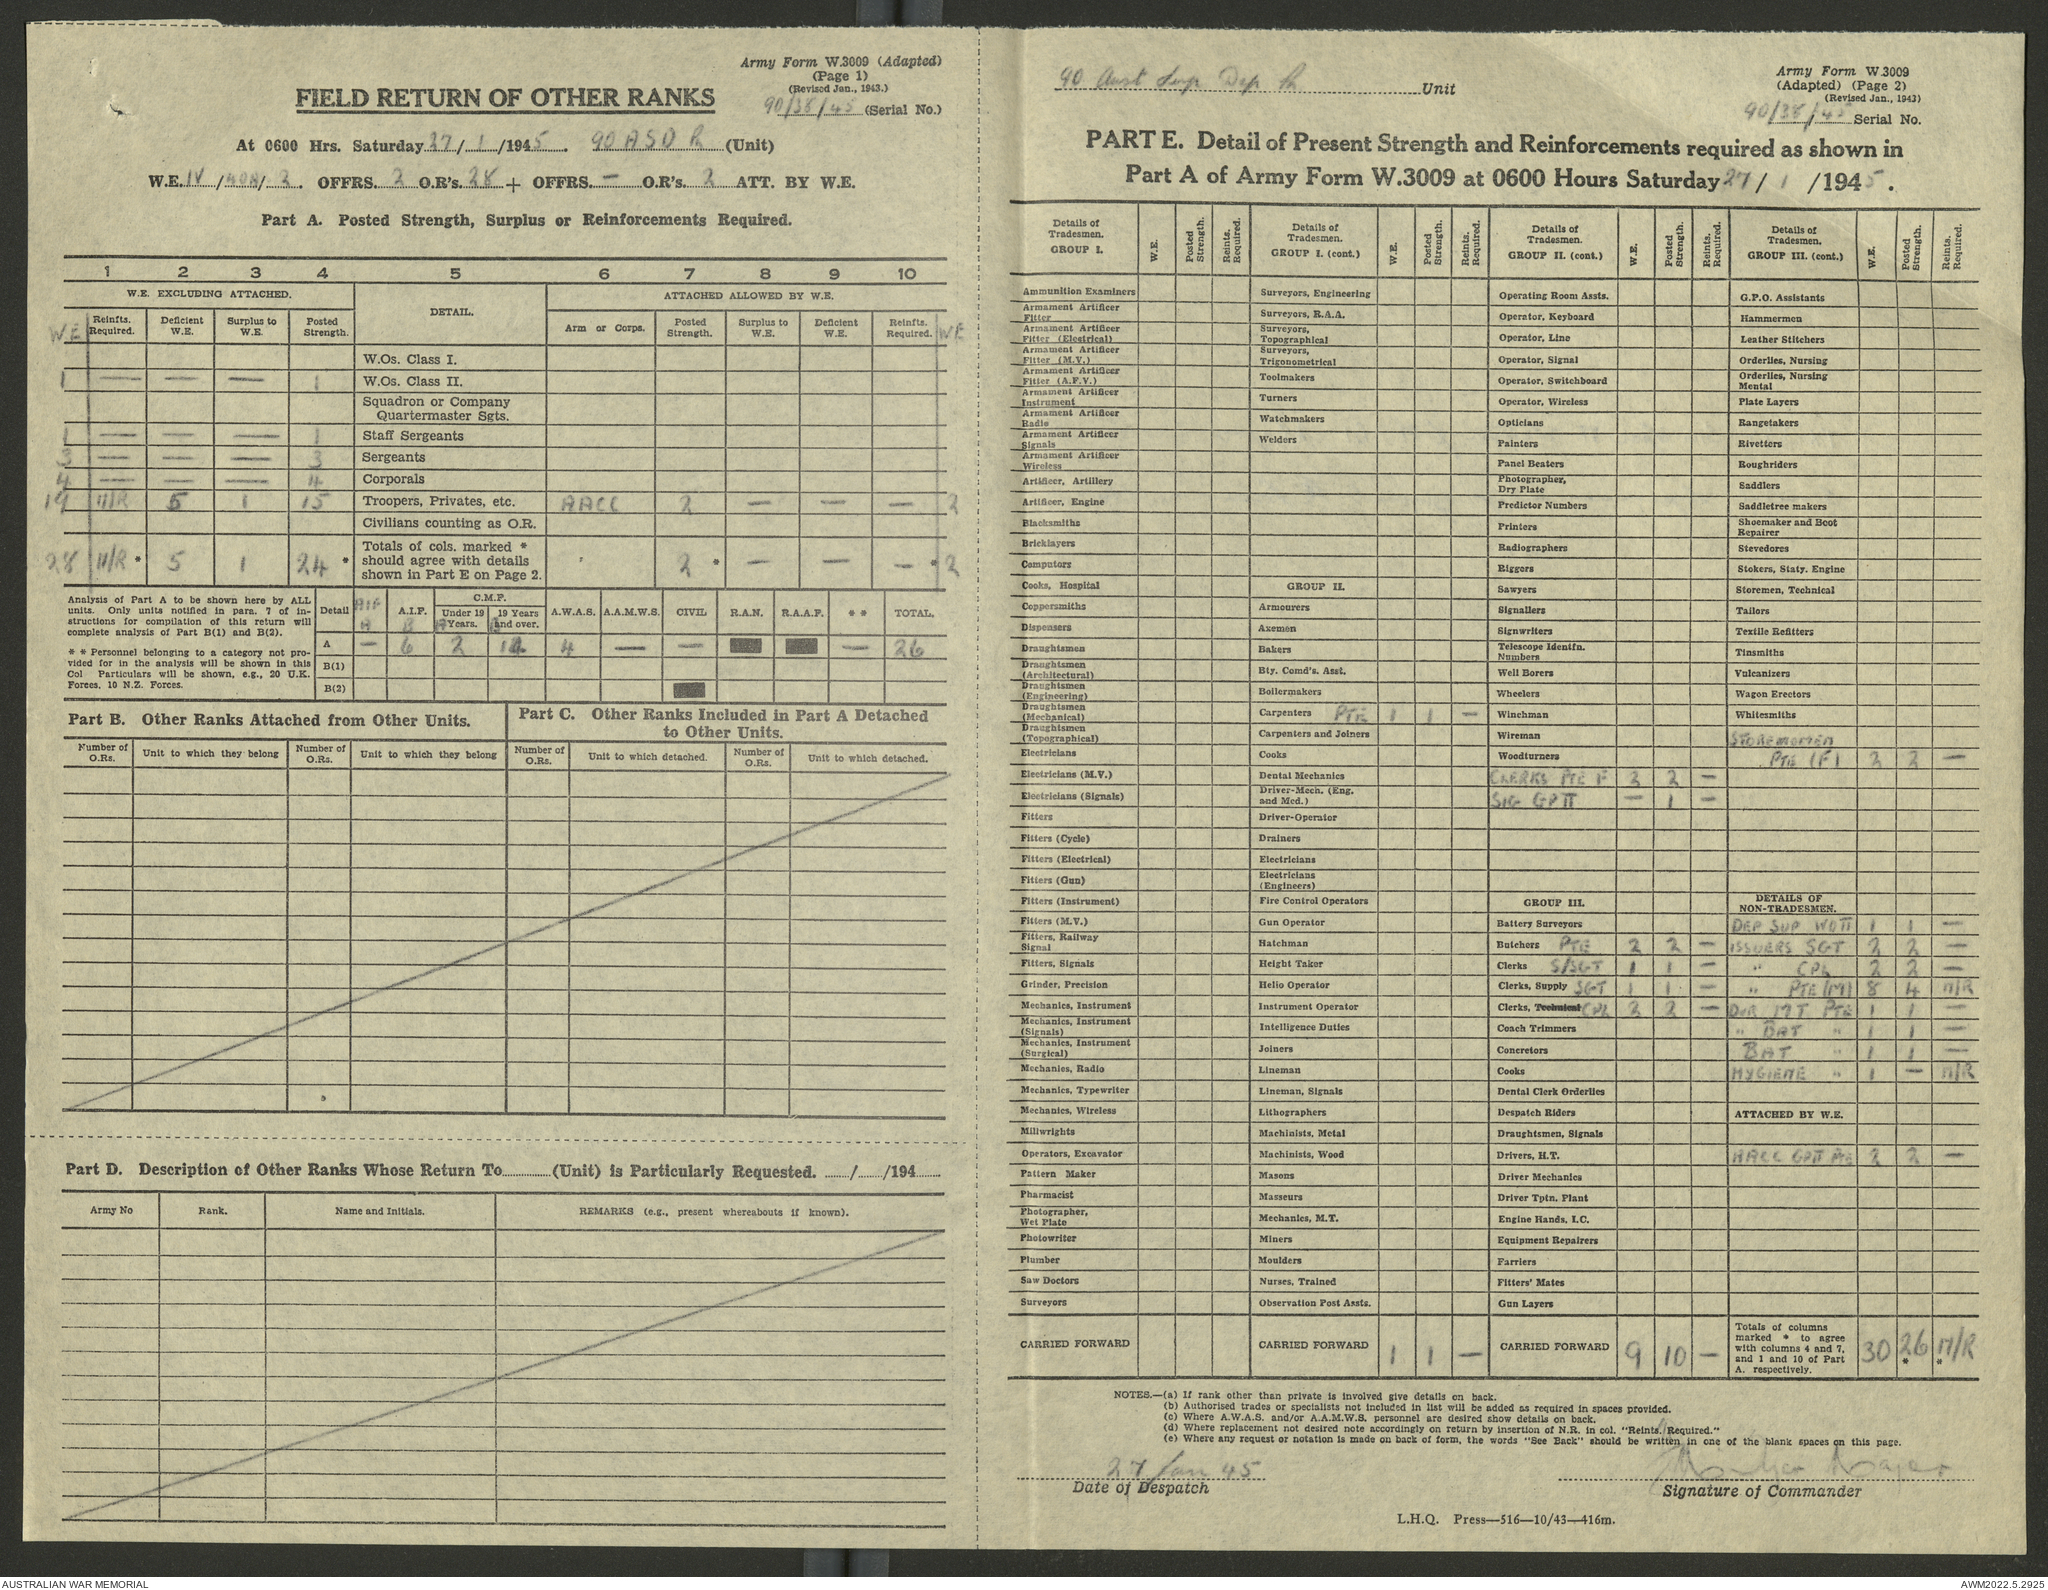 Army Form W.3009 (Adapted)
(Page 1)
(Revised Jan., 1943.)
90/38/45 (Serial No.)
FIELD RETURN OF OTHER RANKS
At 0600 Hrs. Saturday 27/1/1945. 90 ASD Pl (Unit)
W.E. IV/40A/2. OFFRS. 2 O.R's. 28 + OFFRS. — O.R's. 2 ATT. BY W.E.
Part A. Posted Strength, Surplus or Reinforcements Required.
1 2 3 4 5 6 7 8 9 10
W.E. EXCLUDING ATTACHED. DETAIL. ATTACHED ALLOWED BY W.E.
W.E Reinfts. Required. Deficient W.E. Surplus to W.E. Posted Strength. Arm or Corps. Posted Strength. Surplus to W.E. Deficient W.E. Reinfts. Required. WE
W.Os. Class I.
1 — — — 1 W.Os. Class II.
Squadron or Company
Quartermaster Sgts.
1 — — — 1 Staff Sergeants
3 — — — 3 Sergeants
4 — — — 4 Corporals
19 N/R 5 1 15 Troopers, Privates, etc. AACC 2 — — — 2
Civilians counting as O.R.
28 N/R * 5 1 24 * Totals of cols. marked * should agree with details shown in Part E on Page 2. 2 * — — — * 2
Analysis of Part A to be shown here by ALL
units. Only units notified in para. 7 of in-
structions for compilation of this return will
complete analysis of Part B(1) and B(2).
* * Personnel belonging to a category not pro-
vided for in the analysis will be shown in this
Col Particulars will be shown, e.g., 20 U.K.
Forces, 10 N.Z. Forces.
Detail AIF A A.I.F. B C.M.F. A Under 19 Years. B 19 Years and over. A.W.A.S. A.A.M.W.S. CIVIL R.A.N. R.A.A.F. * * TOTAL.
A — 6 2 14 4 — — — 26
B(1)
B(2)
Part B. Other Ranks Attached from Other Units.
Number of O.Rs. Unit to which they belong Number of O.Rs. Unit to which they belong
Part C. Other Ranks Included in Part A Detached
to Other Units.
Number of O.Rs. Unit to which detached. Number of O.Rs. Unit to which detached.
Part D. Description of Other Ranks Whose Return To (Unit) is Particularly Requested. / /194
Army No Rank. Name and Initials. REMARKS (e.g., present whereabouts if known).
90 Aust Sup Dep Pl Unit
Army Form W.3009
(Adapted) (Page 2)
(Revised Jan., 1943)
90/38/45 Serial No.
PART E. Detail of Present Strength and Reinforcements required as shown in
Part A of Army Form W.3009 at 0600 Hours Saturday 27/1/1945.
Details of Tradesmen. GROUP I. W.E. Posted Strength. Reints. Required.
Ammunition Examiners
Armament Artificer Fitter
Armament Artificer Fitter (Electrical)
Armament Artificer Fitter (M.V.)
Armament Artificer Fitter (A.F.V.)
Armament Artificer Instrument
Armament Artificer Radio
Armament Artificer Signals
Armament Artificer Wireless
Artificer, Artillery
Artificer, Engine
Blacksmiths
Bricklayers
Computors
Cooks, Hospital
Coppersmiths
Dispensers
Draughtsmen
Draughtsmen (Architectural)
Draughtsmen (Engineering)
Draughtsmen (Mechanical)
Draughtsmen (Topographical)
Electricians
Electricians (M.V.)
Electricians (Signals)
Fitters
Fitters (Cycle)
Fitters (Electrical)
Fitters (Gun)
Fitters (Instrument)
Fitters (M.V.)
Fitters, Railway Signal
Fitters, Signals
Grinder, Precision
Mechanics, Instrument
Mechanics, Instrument (Signals)
Mechanics, Instrument (Surgical)
Mechanics, Radio
Mechanics, Typewriter
Mechanics, Wireless
Millwrights
Operators, Excavator
Pattern Maker
Pharmacist
Photographer, Wet Plate
Photowriter
Plumber
Saw Doctors
Surveyors
CARRIED FORWARD
Details of Tradesmen. GROUP I. (cont.) W.E. Posted Strength. Reints. Required.
Surveyors, Engineering
Surveyors, R.A.A.
Surveyors, Topographical
Surveyors, Trigonometrical
Toolmakers
Turners
Watchmakers
Welders
GROUP II.
Armourers
Axemen
Bakers
Bty. Comd's. Asst.
Boilermakers
Carpenters PTE 1 1 —
Carpenters and Joiners
Cooks
Dental Mechanics
Driver-Mech. (Eng. and Med.)
Driver-Operator
Drainers
Electricians
Electricians (Engineers)
Fire Control Operators
Gun Operator
Hatchman
Height Taker
Helio Operator
Instrument Operator
Intelligence Duties
Joiners
Lineman
Lineman, Signals
Lithographers
Machinists, Metal
Machinists, Wood
Masons
Masseurs
Mechanics, M.T.
Miners
Moulders
Nurses, Trained
Observation Post Assts.
CARRIED FORWARD 1 1 —
Details of Tradesmen. GROUP II. (cont.) W.E. Posted Strength. Reints. Required.
Operating Room Assts.
Operator, Keyboard
Operator, Line
Operator, Signal
Operator, Switchboard
Operator, Wireless
Opticians
Painters
Panel Beaters
Photographer, Dry Plate
Predictor Numbers
Printers
Radiographers
Riggers
Sawyers
Signallers
Signwriters
Telescope Identfn. Numbers
Well Borers
Wheelers
Winchman
Wireman
Woodturners
CLERKS PTE F 2 2 —
SIG GPII — 1 —
GROUP III.
Battery Surveyors
Butchers PTE 2 2 —
Clerks S/SGT 1 1 —
Clerks, Supply SGT 1 1 —
Clerks, Technical CPL 2 2 —
Coach Trimmers
Concretors
Cooks
Dental Clerk Orderlies
Despatch Riders
Draughtsmen, Signals
Drivers, H.T.
Driver Mechanics
Driver Tptn. Plant
Engine Hands, I.C.
Equipment Repairers
Farriers
Fitters' Mates
Gun Layers
CARRIED FORWARD 9 10 —
Details of Tradesmen. GROUP III. (cont.) W.E. Posted Strength. Reints. Required.
G.P.O. Assistants
Hammermen
Leather Stitchers
Orderlies, Nursing
Orderlies, Nursing Mental
Plate Layers
Rangetakers
Rivetters
Roughriders
Saddlers
Saddletree makers
Shoemaker and Boot Repairer
Stevedores
Stokers, Staty. Engine
Storemen, Technical
Tailors
Textile Refitters
Tinsmiths
Vulcanizers
Wagon Erectors
Whitesmiths
STOREWOMEN
PTE (F) 2 2 —
DETAILS OF NON-TRADESMEN.
DEP SUP WOII 1 1 —
ISSUERS SGT 2 2 —
" CPL 2 2 —
" PTE (M) 8 4 N/R
DVR IIT PTE 1 1 —
" BAT " 1 1 —
BAT " 1 1 —
HYGIENE " 1 — N/R
ATTACHED BY W.E.
AACC GPII PTE 2 2 —
Totals of columns marked * to agree with columns 4 and 7, and 1 and 10 of Part A. respectively. 30 26 * N/R *
NOTES.—(a) If rank other than private is involved give details on back.
(b) Authorised trades or specialists not included in list will be added as required in spaces provided.
(c) Where A.W.A.S. and/or A.A.M.W.S. personnel are desired show details on back.
(d) Where replacement not desired note accordingly on return by insertion of N.R. in col. "Reints. Required."
(e) Where any request or notation is made on back of form, the words "See Back" should be written in one of the blank spaces on this page.
27 Jan 45
Date of Despatch
Signature of Commander
L.H.Q. Press—516—10/43—416m.
AUSTRALIAN WAR MEMORIAL
AWM2022.5.2925